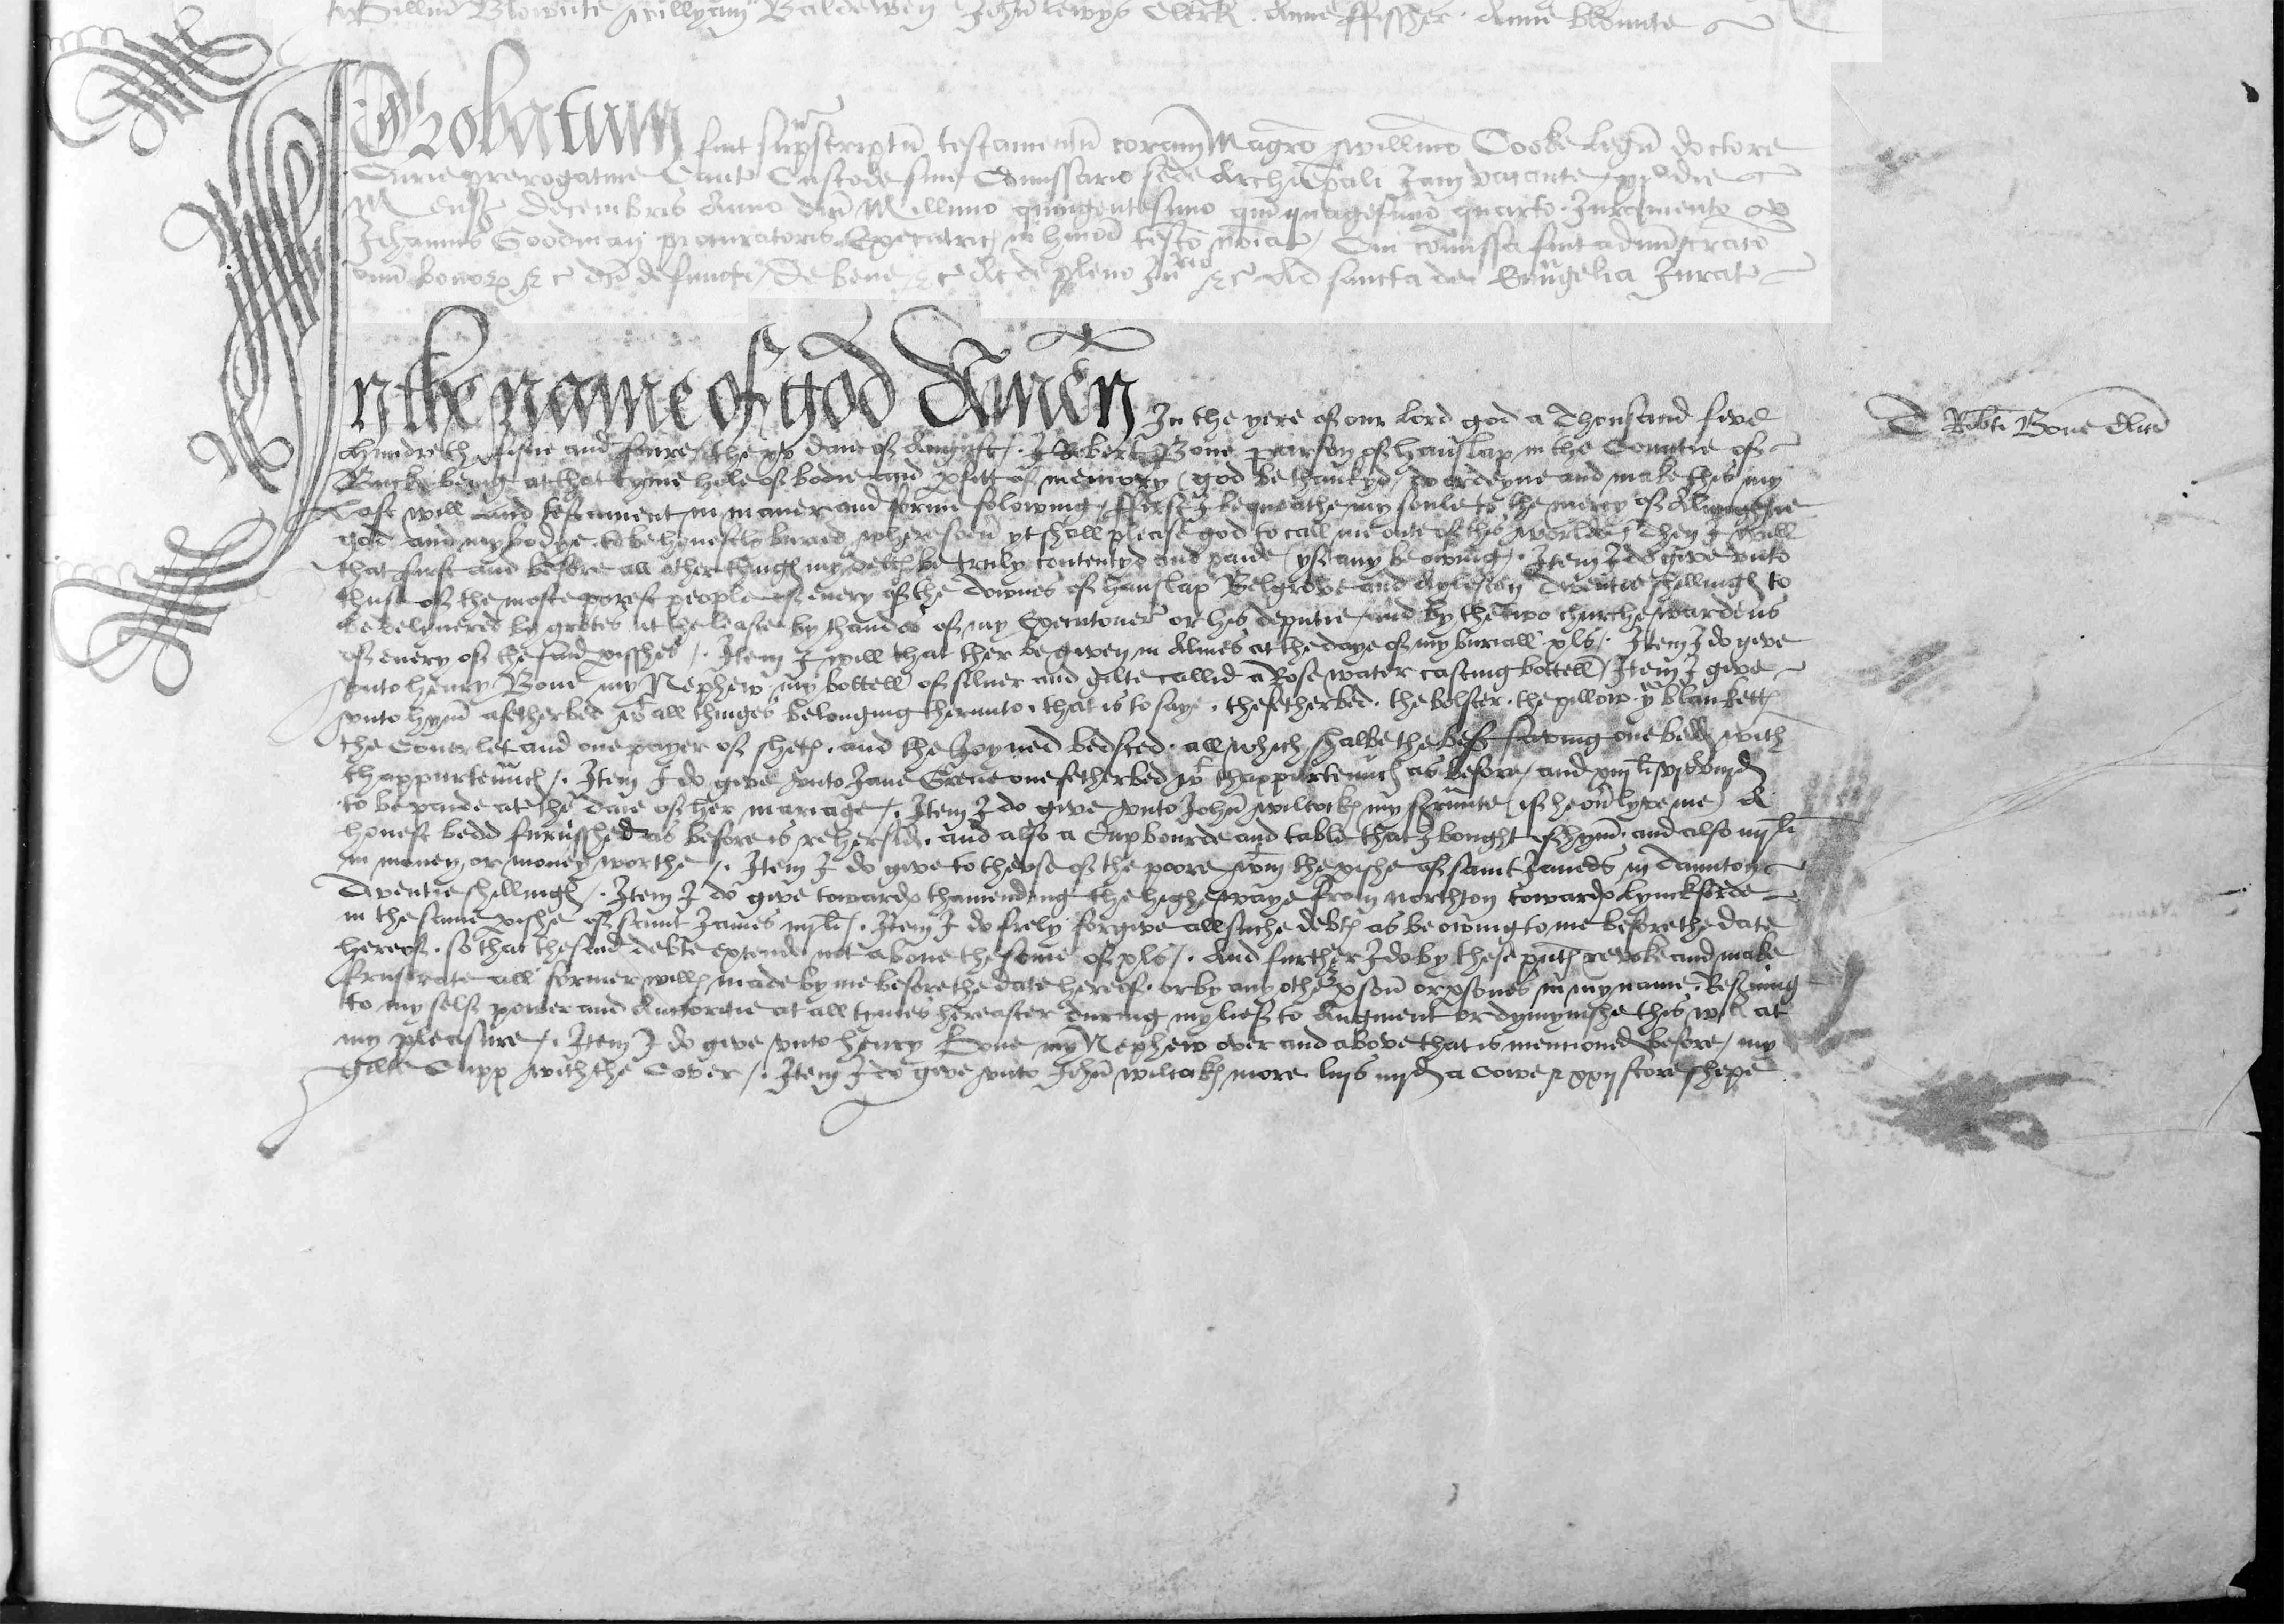 Blounte willyam Baldewen John lewys Clerk . Anne ffissher . Anne Blounte
Probatum fuit sup^rascriptu testamentu coram Magro willmo Cooke legu doctore
Curie prerogative Cant Custode sive Comissario sede Archiepali Iam vacante xj^o die
Mens Decembris Anno dni Millimo quingentesimo quinquagesimo quarto . Iuramento
Iohannis Goodman procuratoris Executric in hmoi testo noiat / Cui comissa fuit administracio
oniu bonorz &c dci defuncti / De bene &c Ac de pleno Inu^rio &c Ad sancta dei Evngelia Iurat
In the name of god Amen In the yere of our lord god a Thousand five
hundreth fiftie and foure / the xx daie of August /. I Robert Bone parson of hanslap in the Countie of
Buck being at that tyme hole of bodie and pfitt of memory (god be thankyd) do ordeyne and make this my
Last will and testament in maner and forme folowing / ffirst I bequeathe my soule to the mercy of Almightie
god and my bodye to be honestly buried where soeu yt shall please god to call me oute of this worlde / Then I will
that first and before all other thing my dett be truly contentyd and paide (yf any be owing) . Item I do give vnto
thuse of the moste porest people of euery of the Townes of hanslap Belgrove and Ayleston Twentie shilling to
be delyuered by grotes at the leaste by thandes of my Executoner or his deputie / and by the two churche wardens
of euery of the said pisshes /. Item I will that ther be given in Almes at the daye of my buriall xls /. Item I do give
vnto henry Bone my Nephew my bottell of siluer and gilte callid a Rose water casting bottell / Item I give
vnto hym a fetherbed w^t all thinges belonging therunto . that is to saye . the fetherbed . the bolster . the pillow . y^e blankett
the Couerlet and one payer of shet . and the Joyned bedsted . all which shalbe the best saving one bedd with
thappurtennc /. Item I do give vnto Jane Grene one fetherbed w^t thappurtennc as before / and xiij li vjs viijd
to be paide at the daie of her mariage /. Item I do give vnto John wilcock my srunte (if he ou lyve me) A
honest bedd furnisshed as before is rehersid . and also a Cupbourde and table that I bought of hym . and also iij li
in money or money worthe /. Item I do give to thuse of the poore w^tin the pishe of saint James in Taunton
Twentie shilling /. Item I do give toward thamending the highe waye from northton toward lynckforde
in the same pishe of saint James iij li /. Item I do frely forgive all suche debt as be owing to me before the date
hereof . so that the said debte extende not aboue the some of xls /. And further I do by these pnt revoke and make
frustrate all former will made by me before the date hereof . or by any other pson or psones in my name . Resruing
to my self power and Auctoritie at all tymes hereafter during my lief to Augment or dymynishe this will at
my pleasure /. Item I do give vnto henry Bone my Nephew over and above that is mentioned before / my
gilte Cupp with the Cover /. Item I do give vnto John wilcok more . liijs iiijd a Cowe & xxij store shepe
T Robti Bone Clici